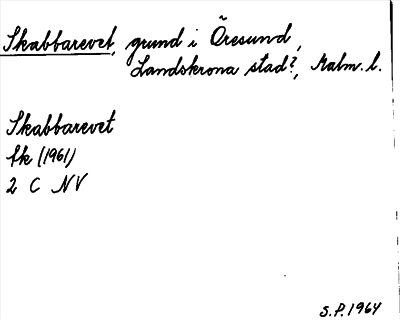 Skabbarevet, grund i Öresund,
Landskrona stad?, Malm. l.
Skabbarevet
sk (1961)
2 C NV
S.P. 1964